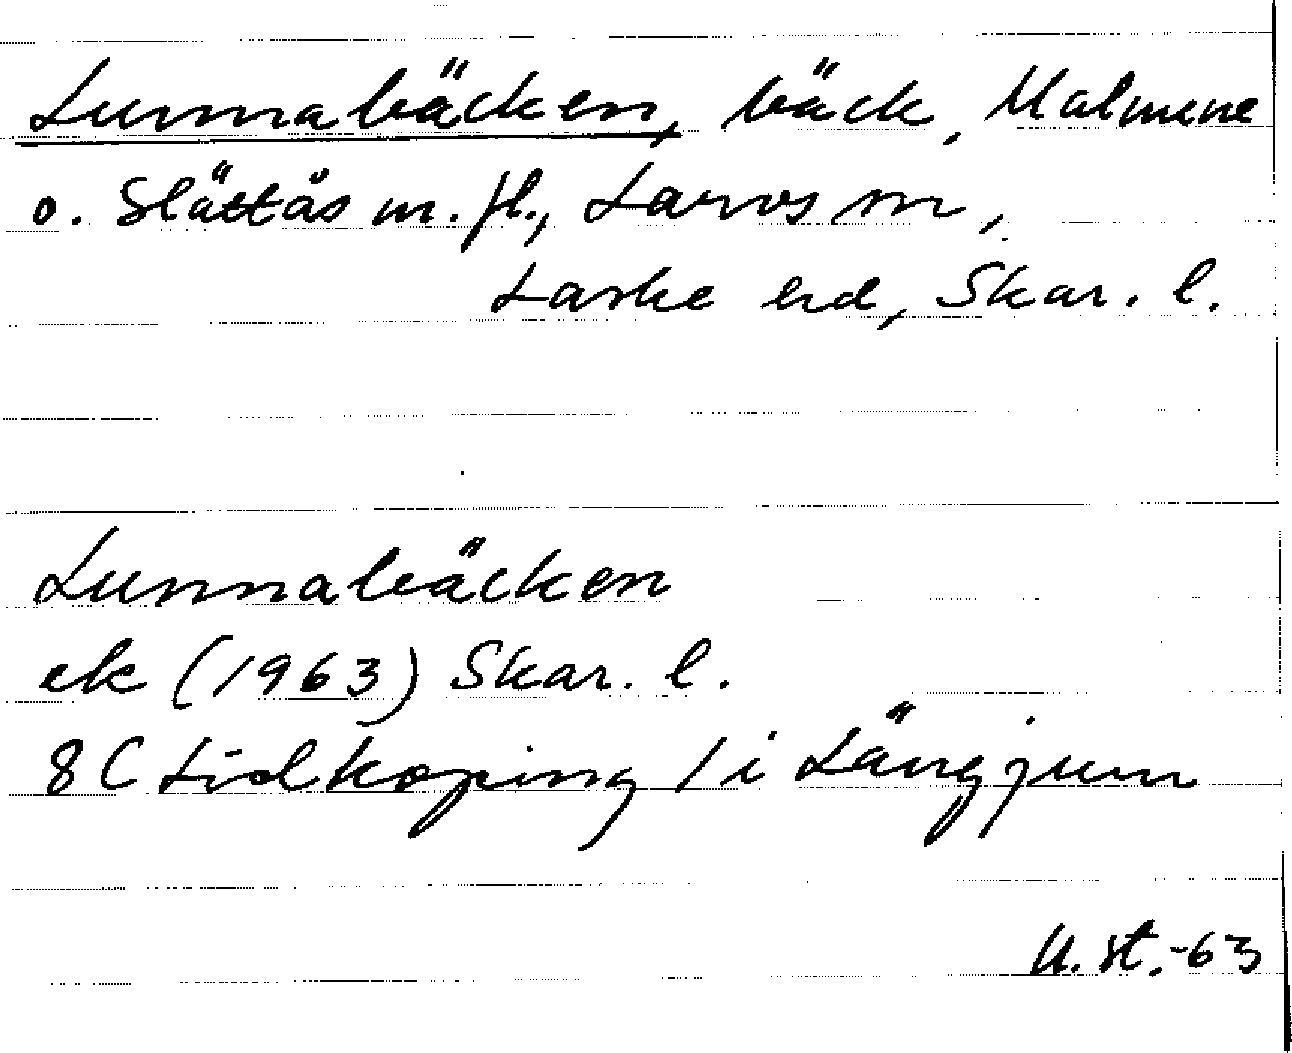 Lunnabäcken, bäck, Malmene
o. Slättås m. fl., Larvs sn,
Laske hd, Skar. l.
Lunnabäcken
ek (1963) Skar. l.
8 C Lidköping 1 i Längjum
U. st. -63